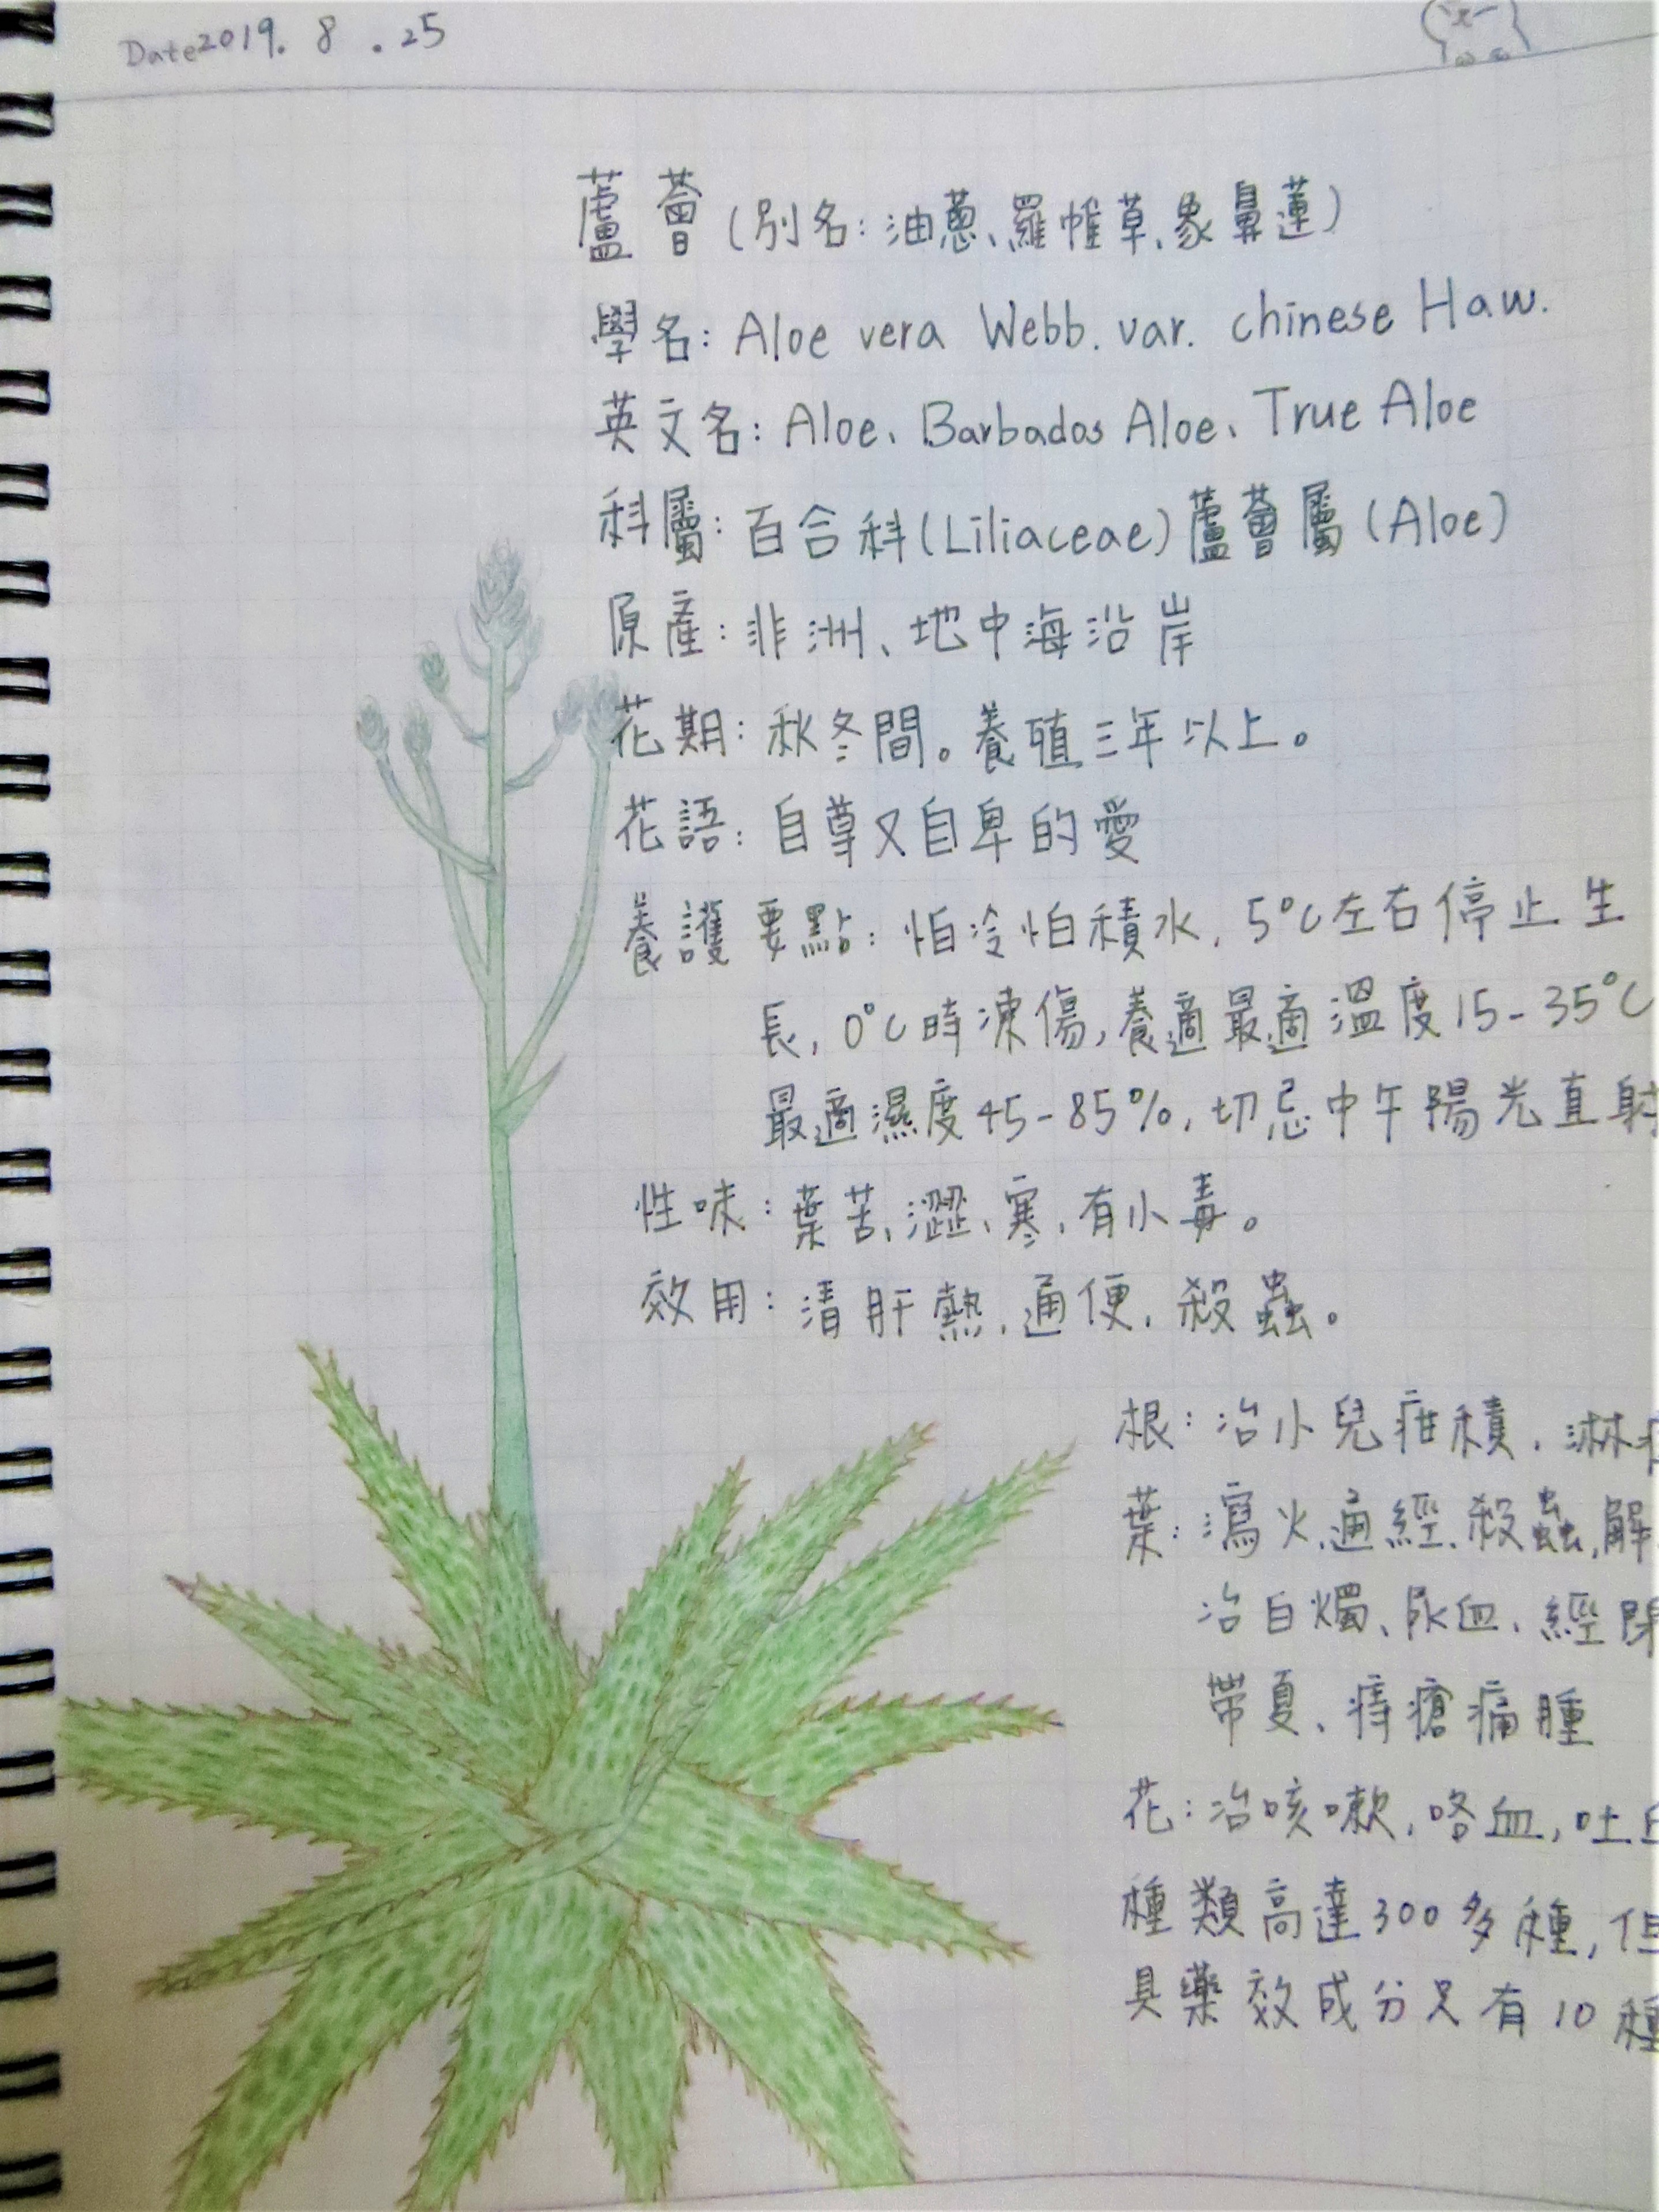 Date 2019. 8 .25
蘆薈(別名:油蔥、羅帷草、象鼻蓮)
學名: Aloe vera Webb. var. chinese Haw.
英文名: Aloe、Barbados Aloe、True Aloe
科屬:百合科(Liliaceae)蘆薈屬(Aloe)
原產:非洲、地中海沿岸
花期:秋冬間。養殖三年以上。
花語:自尊又自卑的愛
養護要點:怕冷怕積水,5°C左右停止生
長,0°C時凍傷,養適最適溫度15-35°C
最適濕度45-85%,切忌中午陽光直射
性味:葉苦、澀、寒,有小毒。
效用:清肝熱,通便,殺蟲。
根:治小兒疳積,淋
葉:瀉火、通經、殺蟲,解
治白燭、尿血、經閉
帶夏、痔瘡痛腫
花:治咳嗽,咯血,吐
種類高達300多種,但
具藥效成分只有10種